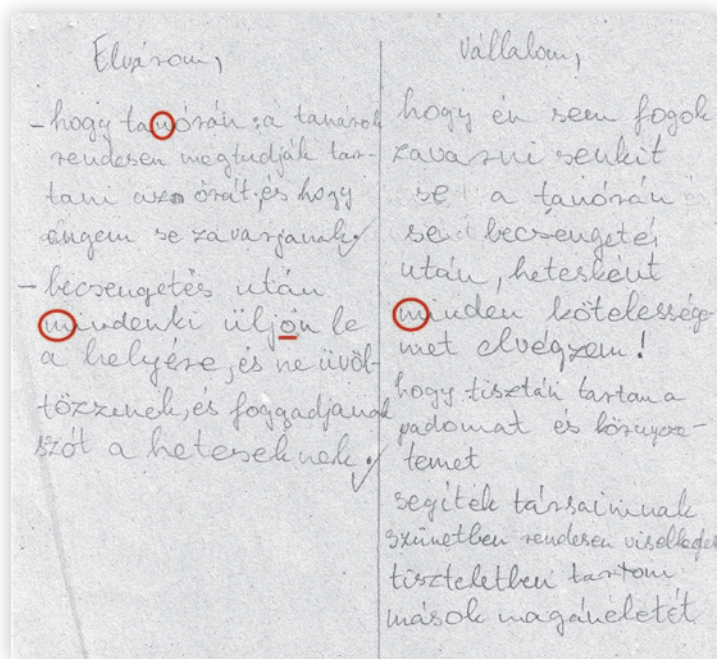 Elvárom,
- hogy tanórán a tanárok
rendesen megtudják tar-
tani az órát, és hogy
engem se zavarjanak
- becsengetés után
mindenki üljön le
a helyére, és ne üvöl-
tözzenek, és foggadjanak
szót a heteseknek.
Vállalom,
hogy én sem fogok
zavarni senkit
se a tanórán
se becsengetés
után, hetesként
minden kötelessége-
met elvégzem!
hogy tisztán tartom a
padomat és környeze-
temet
segítek társaimnak
szünetben rendesen viselkedek
tiszteletben tartom
mások magánéletét